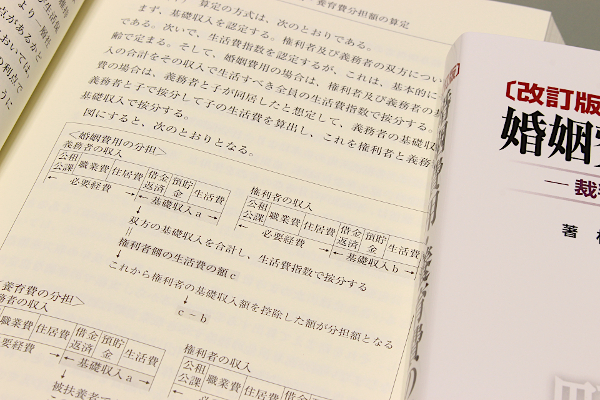 養育費分担額の算定
算定の方式は、次のとおりである。
まず、基礎収入を認定する。権利者及び義務者の双方につい
る。次いで、生活費指数を認定するが、これは、基本的に
齢で定まる。そして、婚姻費用の場合は、権利者及び義務者の基
入の合計をその収入で生活すべき全員の生活費指数で按分する。
費の場合は、義務者と子が同居したと想定して、義務者の基礎収
義務者と子で按分して子の生活費を算出し、これを権利者と義務
基礎収入で按分する。
図にすると、次のとおりとなる。
<婚姻費用の分担>
義務者の収入
公租公課 職業費 住居費 借金返済 預貯金 生活費
必要経費 基礎収入a
権利者の収入
公租公課 職業費 住居費 借金返済 預貯金 生活費
必要経費 基礎収入b
双方の基礎収入を合計し、生活費指数で按分する
権利者側の生活費の額c
これから権利者の基礎収入額を控除した額が分担額となる
c－b
養育費の分担>
務者の収入
職業費 住居費 借金返済 預貯金 生活費
要経費 基礎収入a
権利者の収入
公租公課 職業費 住居費 借金返済 預貯金
必要経費
被扶養者で
〔改訂版
婚姻
―裁
著